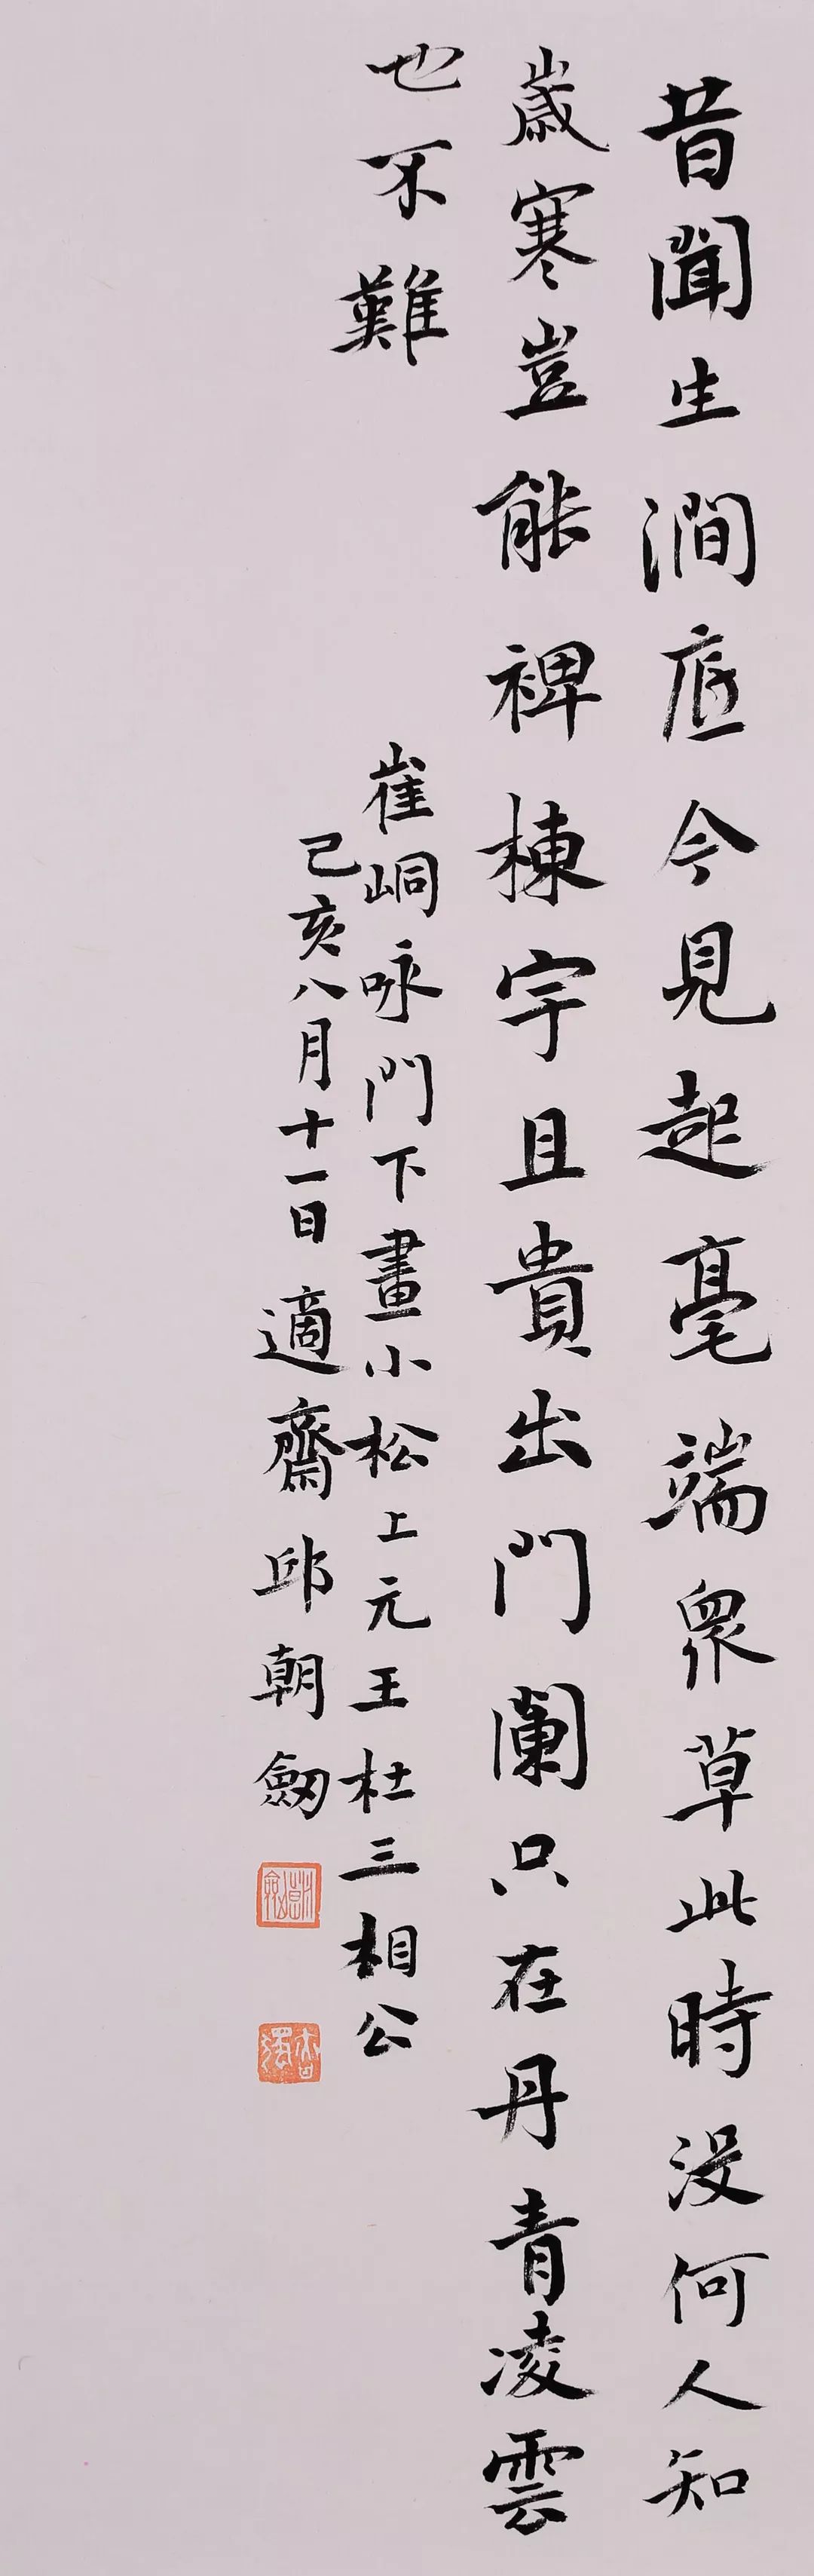 昔聞生澗底今見起毫端眾草此時沒何人知
歲寒豈能裨棟宇且貴出門闌只在丹青淩雲
也不難
崔峒咏門下畫小松上元王杜三相公
己亥八月十一日適齋邱朝劒